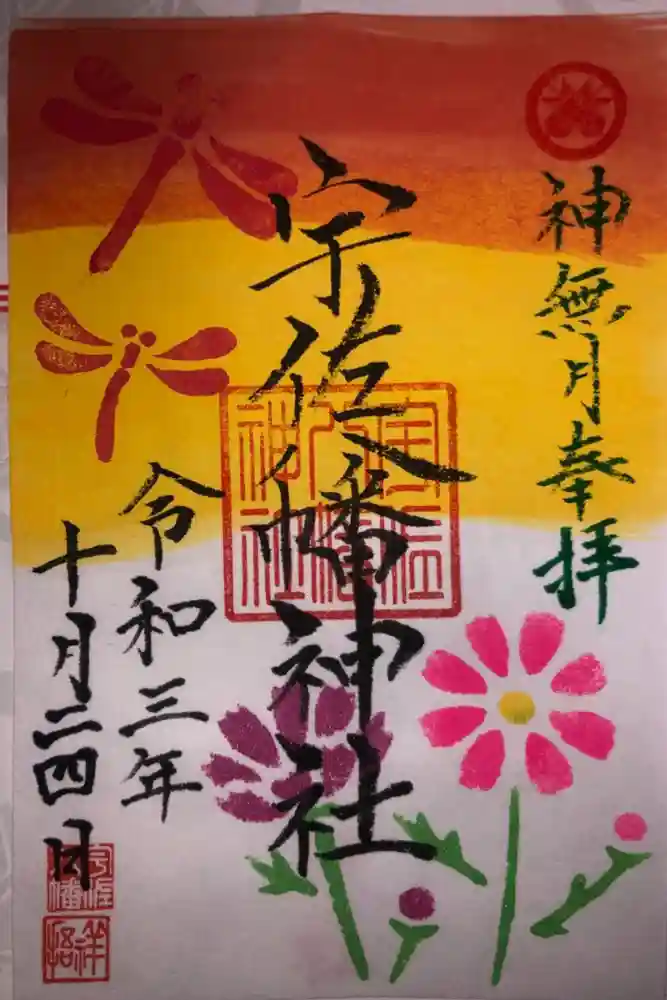 神無月奉拝
宇佐八幡神社
令和三年
十月二四日
宇佐八幡神社
宇佐
八幡